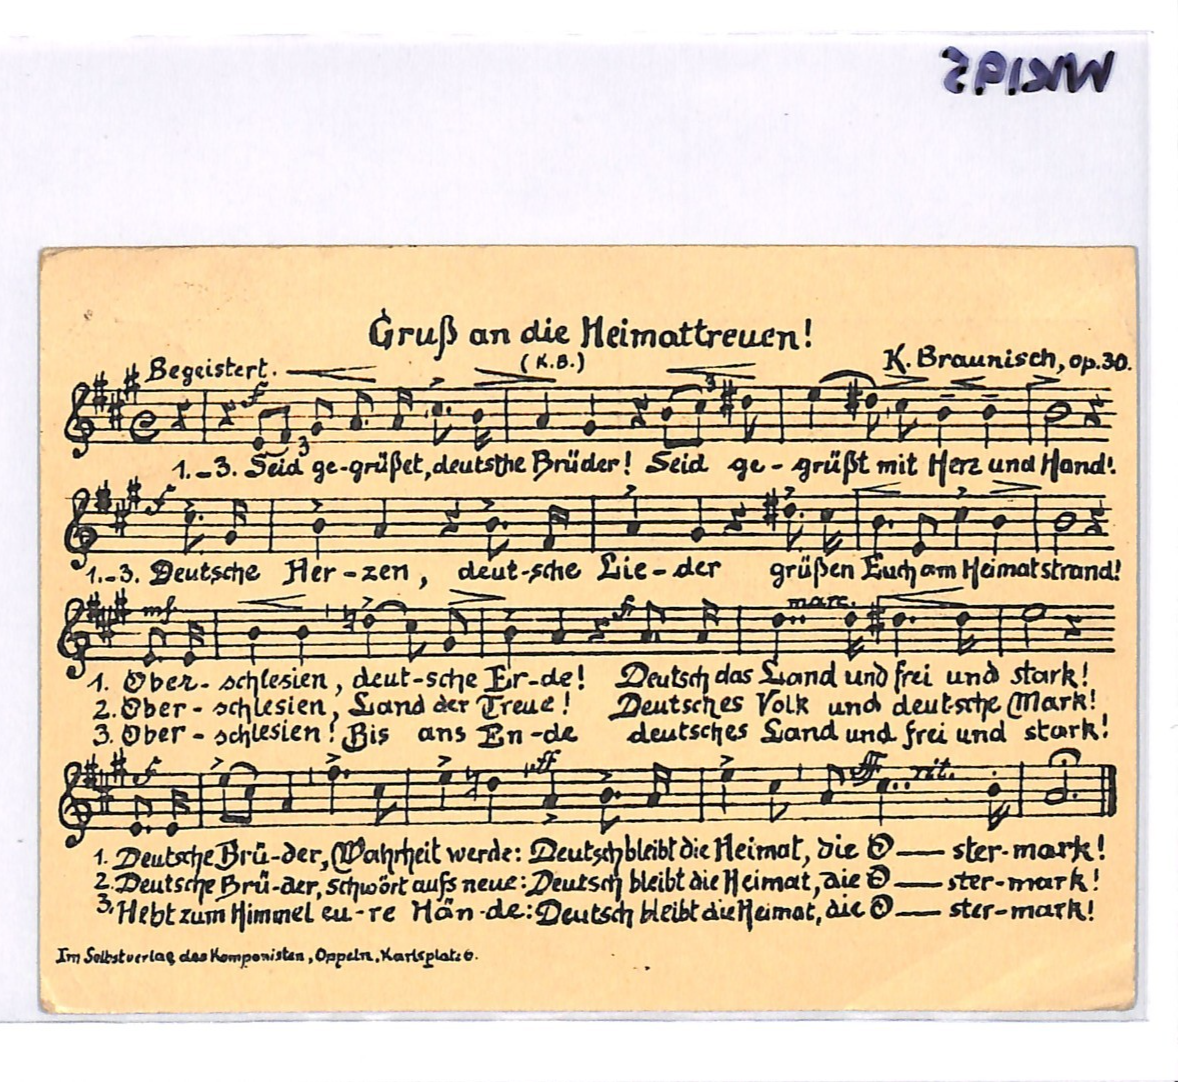 WK195
Gruß an die Heimattreuen!
(K.B.)
Begeistert.
K. Braunisch, op.30.
f
3
3
1.-3. Seid ge-grüßet, deutsche Brüder! Seid ge - grüßt mit Herz und Hand!
f
1.-3. Deutsche Her - zen, deut-sche Lie - der grüßen Euch am Heimatstrand!
mf f marc.
1. Ober - schlesien, deut-sche Er-de! Deutsch das Land und frei und stark!
2. Ober - schlesien, Land der Treue! Deutsches Volk und deutsche Mark!
3. Ober - schlesien! Bis ans En-de deutsches Land und frei und stark!
f ff fff rit.
1. Deutsche Brü-der, Wahrheit werde: Deutsch bleibt die Heimat, die O — ster-mark!
2. Deutsche Brü-der, schwört aufs neue: Deutsch bleibt die Heimat, die O — ster-mark!
3. Hebt zum Himmel eu-re Hän-de: Deutsch bleibt die Heimat, die O — ster-mark!
Im Selbstverlag des Komponisten, Oppeln, Karlsplatz 6.